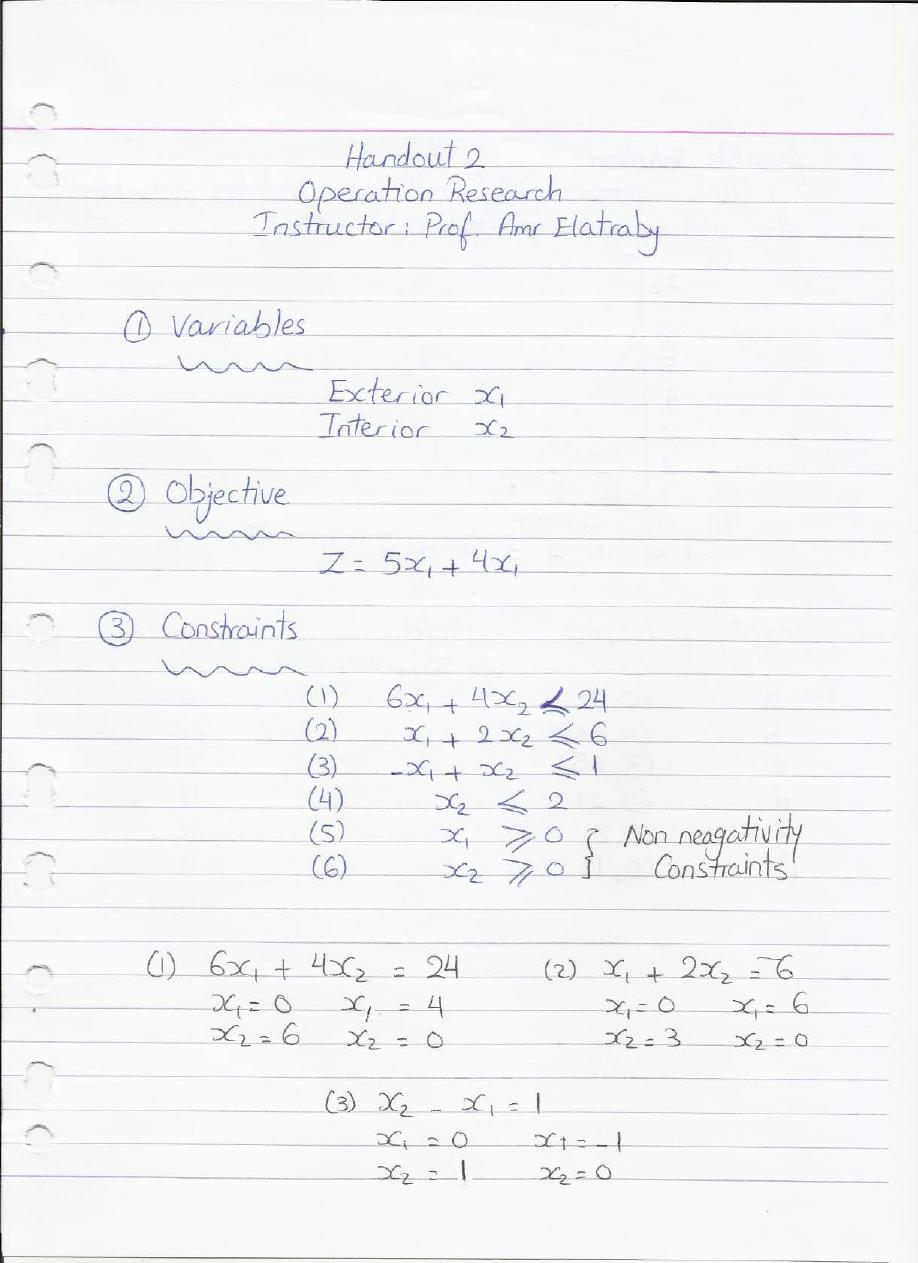 Handout 2
Operation Research
Instructor: Prof. Amr Elatraby
① Variables
Exterior x₁
Interior x₂
② Objective
Z = 5x₁ + 4x₁
③ Constraints
(1) 6x₁ + 4x₂ ≤ 24
(2) x₁ + 2x₂ ≤ 6
(3) -x₁ + x₂ ≤ 1
(4) x₂ ≤ 2
(5) x₁ ≥ 0 } Non neagativity
(6) x₂ ≥ 0 } Constraints
(1) 6x₁ + 4x₂ = 24 (2) x₁ + 2x₂ = 6
x₁ = 0 x₁ = 4 x₁ = 0 x₁ = 6
x₂ = 6 x₂ = 0 x₂ = 3 x₂ = 0
(3) x₂ - x₁ = 1
x₁ = 0 x₁ = -1
x₂ = 1 x₂ = 0